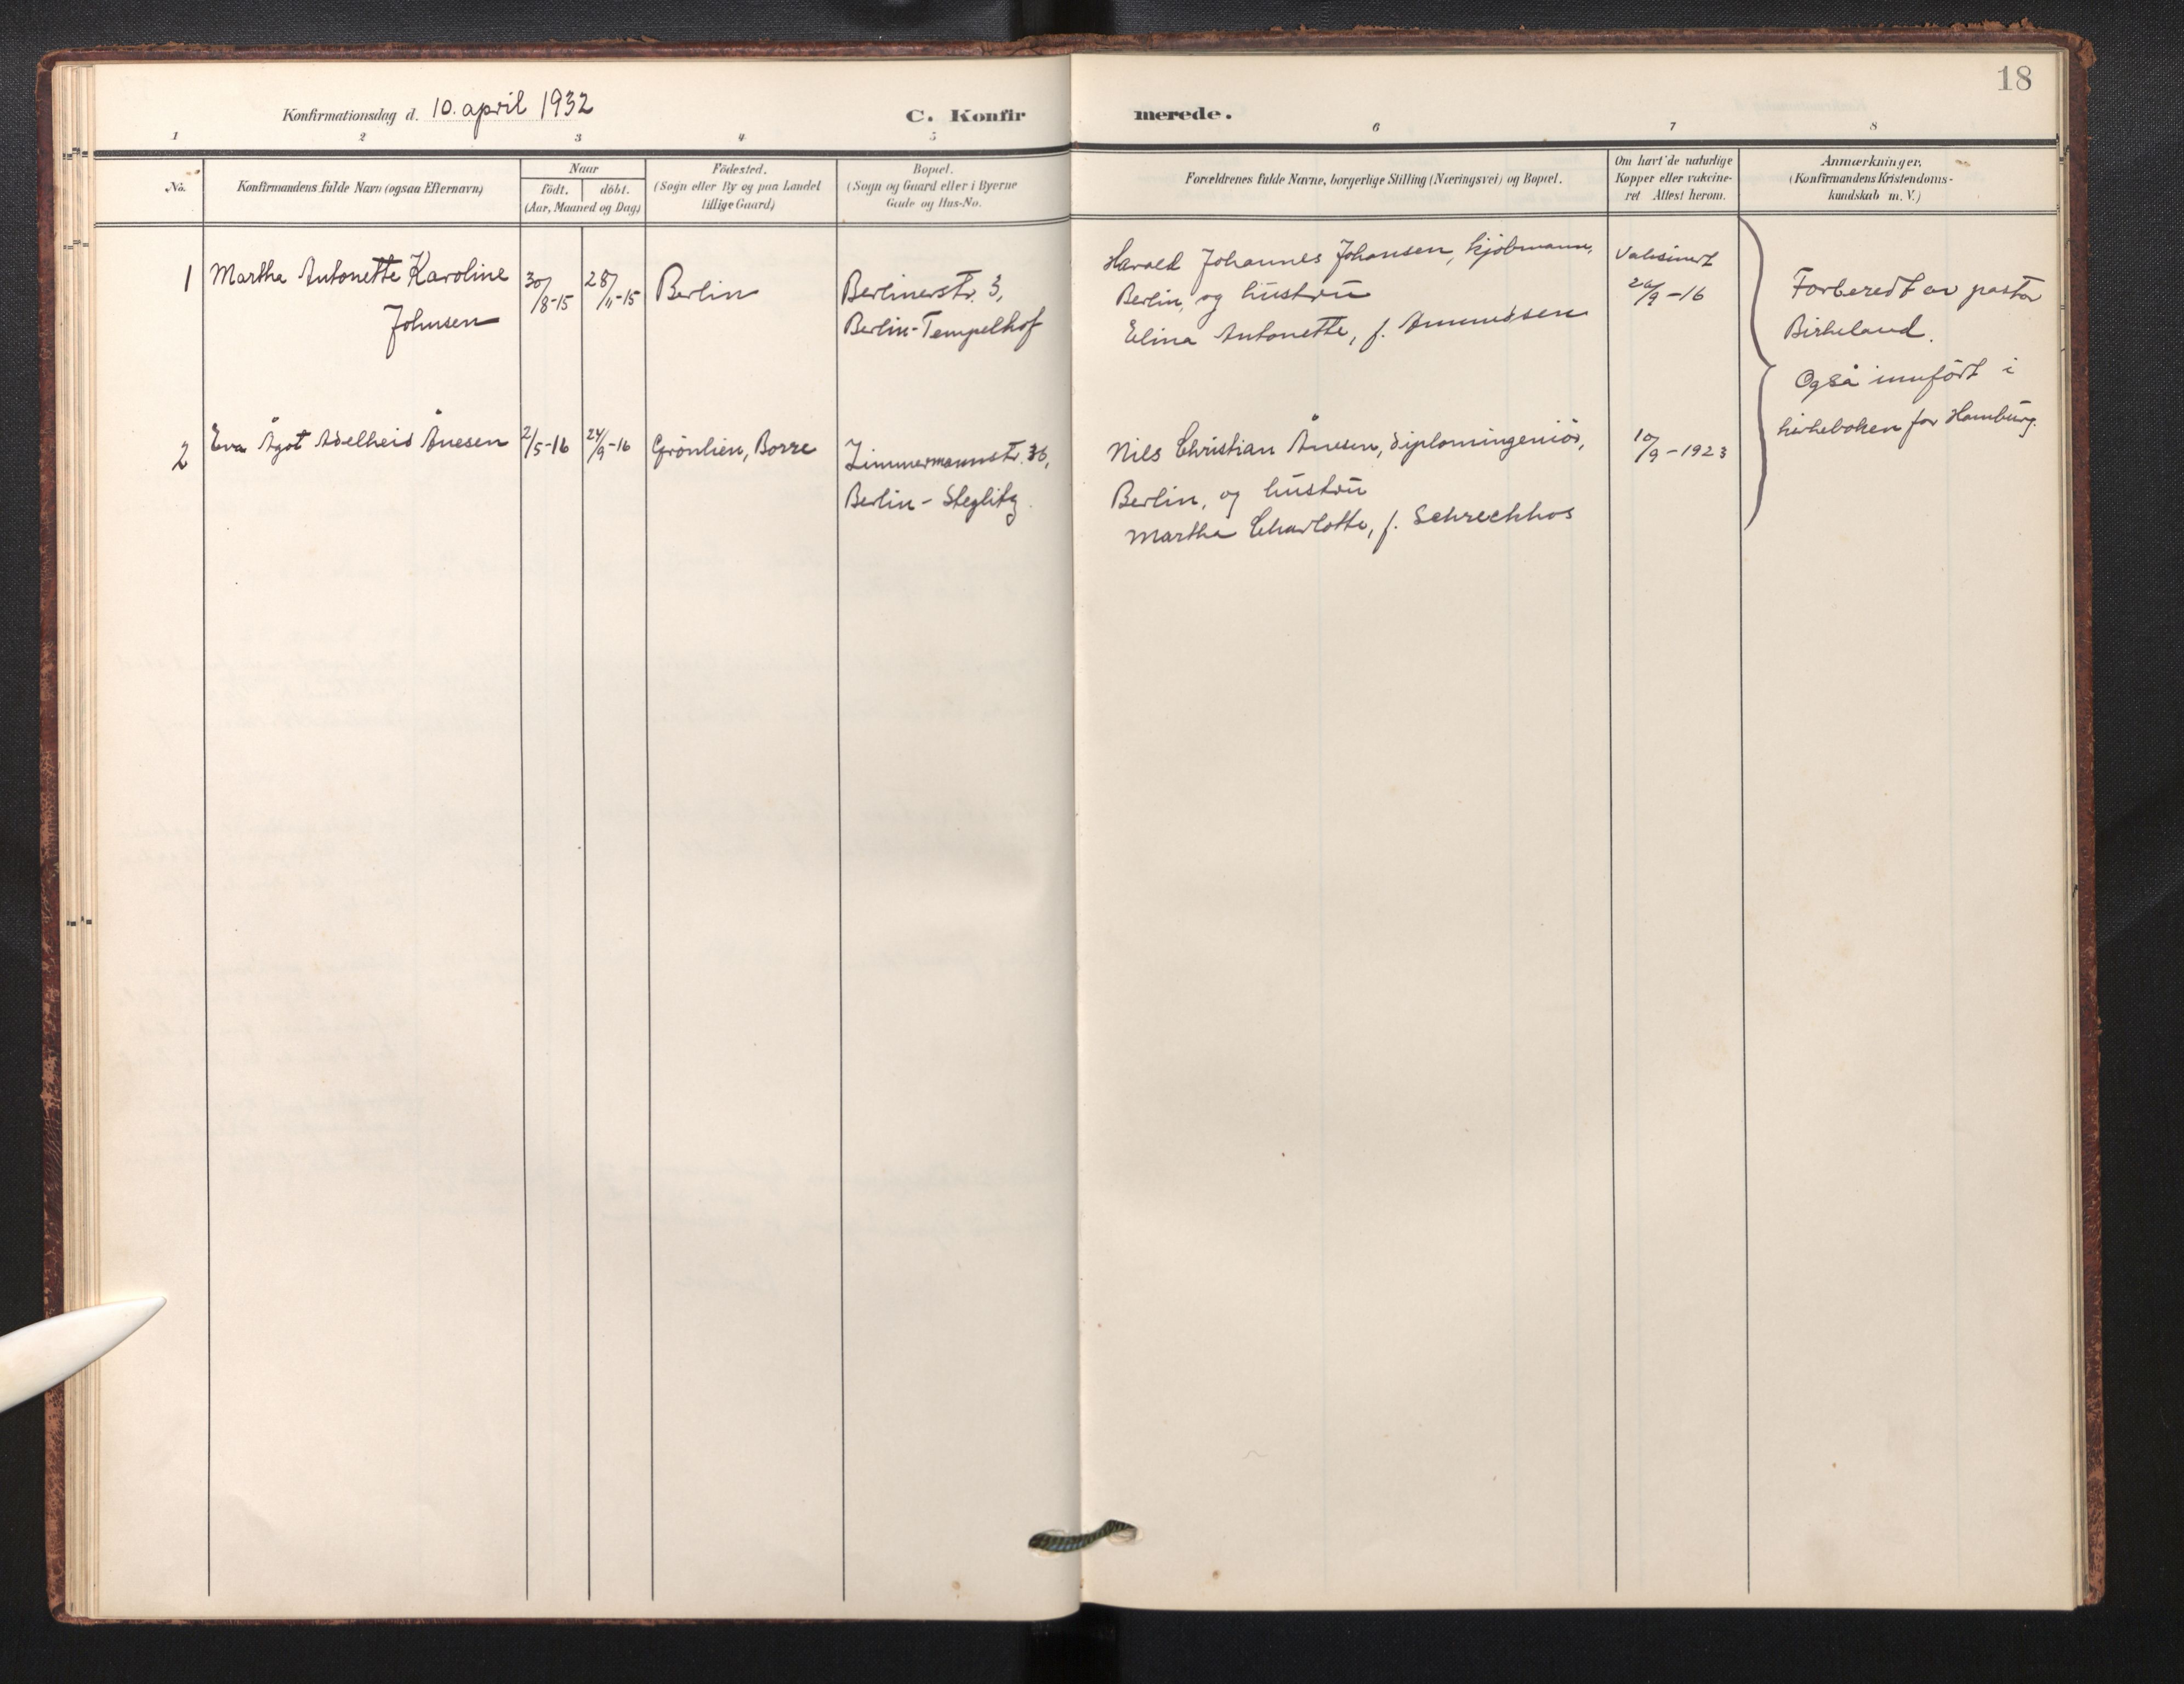 18
Konfirmationsdag d. 10. april 1932
C. Konfirmerede.
1 2 3 4 5 6 7 8
No.
Konfirmandens fulde Navn (ogsaa Efternavn)
Naar
födt. döbt.
(Aar, Maaned og Dag)
Födested.
(Sogn eller By og paa Landet
tillige Gaard)
Bopæl.
(Sogn og Gaard eller i Byerne
Gade og Hus-No.
Forældrenes fulde Navne, borgerlige Stilling (Næringsvei) og Bopæl.
Om havt de naturlige
Kopper eller vakcine-
ret Attest herom.
Anmærkninger.
(Konfirmandens Kristendoms-
kundskab m. V.)
1
Martha Antonette Karoline
Johnsen
30/8-15
28/11-15
Berlin
Berlinerstr. 3,
Berlin-Tempelhof
Harald Johannes Johansen, kjöbmann,
Berlin, og hustru
Elina Antonette, f. Amundsen
Vaksinert
/9-16
Forberedt av pastor
Birkeland.
Også innfört i
kirkeboken for Hamburg.
2
Eva Ågot Adelheid Ånesen
2/5-16
24/9-16
Grönlien, Borre
Zimmermannstr. 36,
Berlin-Steglitz.
Nils Christian Ånesen, diplomingeniör,
Berlin, og hustru
Martha Charlotte, f. Schreckhos
10/9-1923